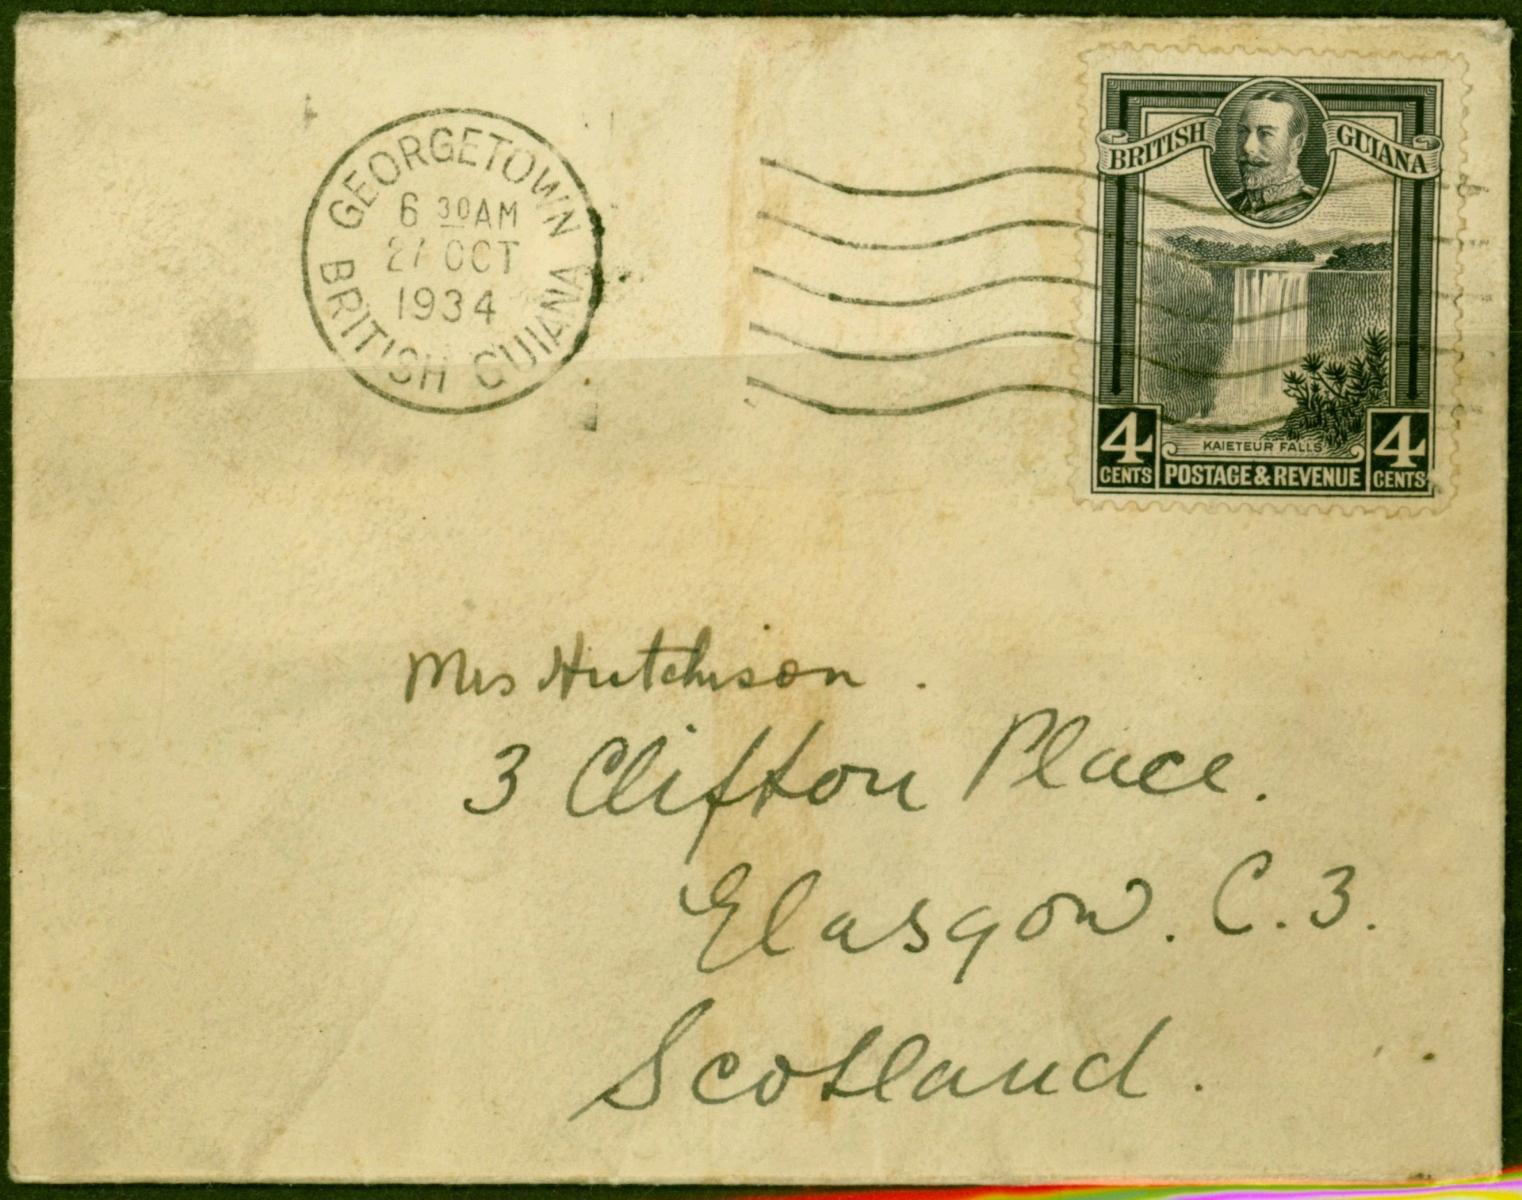 GEORGETOWN
6 30AM
27 OCT
1934
BRITISH GUIANA
BRITISH GUIANA
KAIETEUR FALLS
4 CENTS POSTAGE & REVENUE 4 CENTS
Mrs Hutchison.
3 Clifton Place.
Glasgow. C.3.
Scotland.